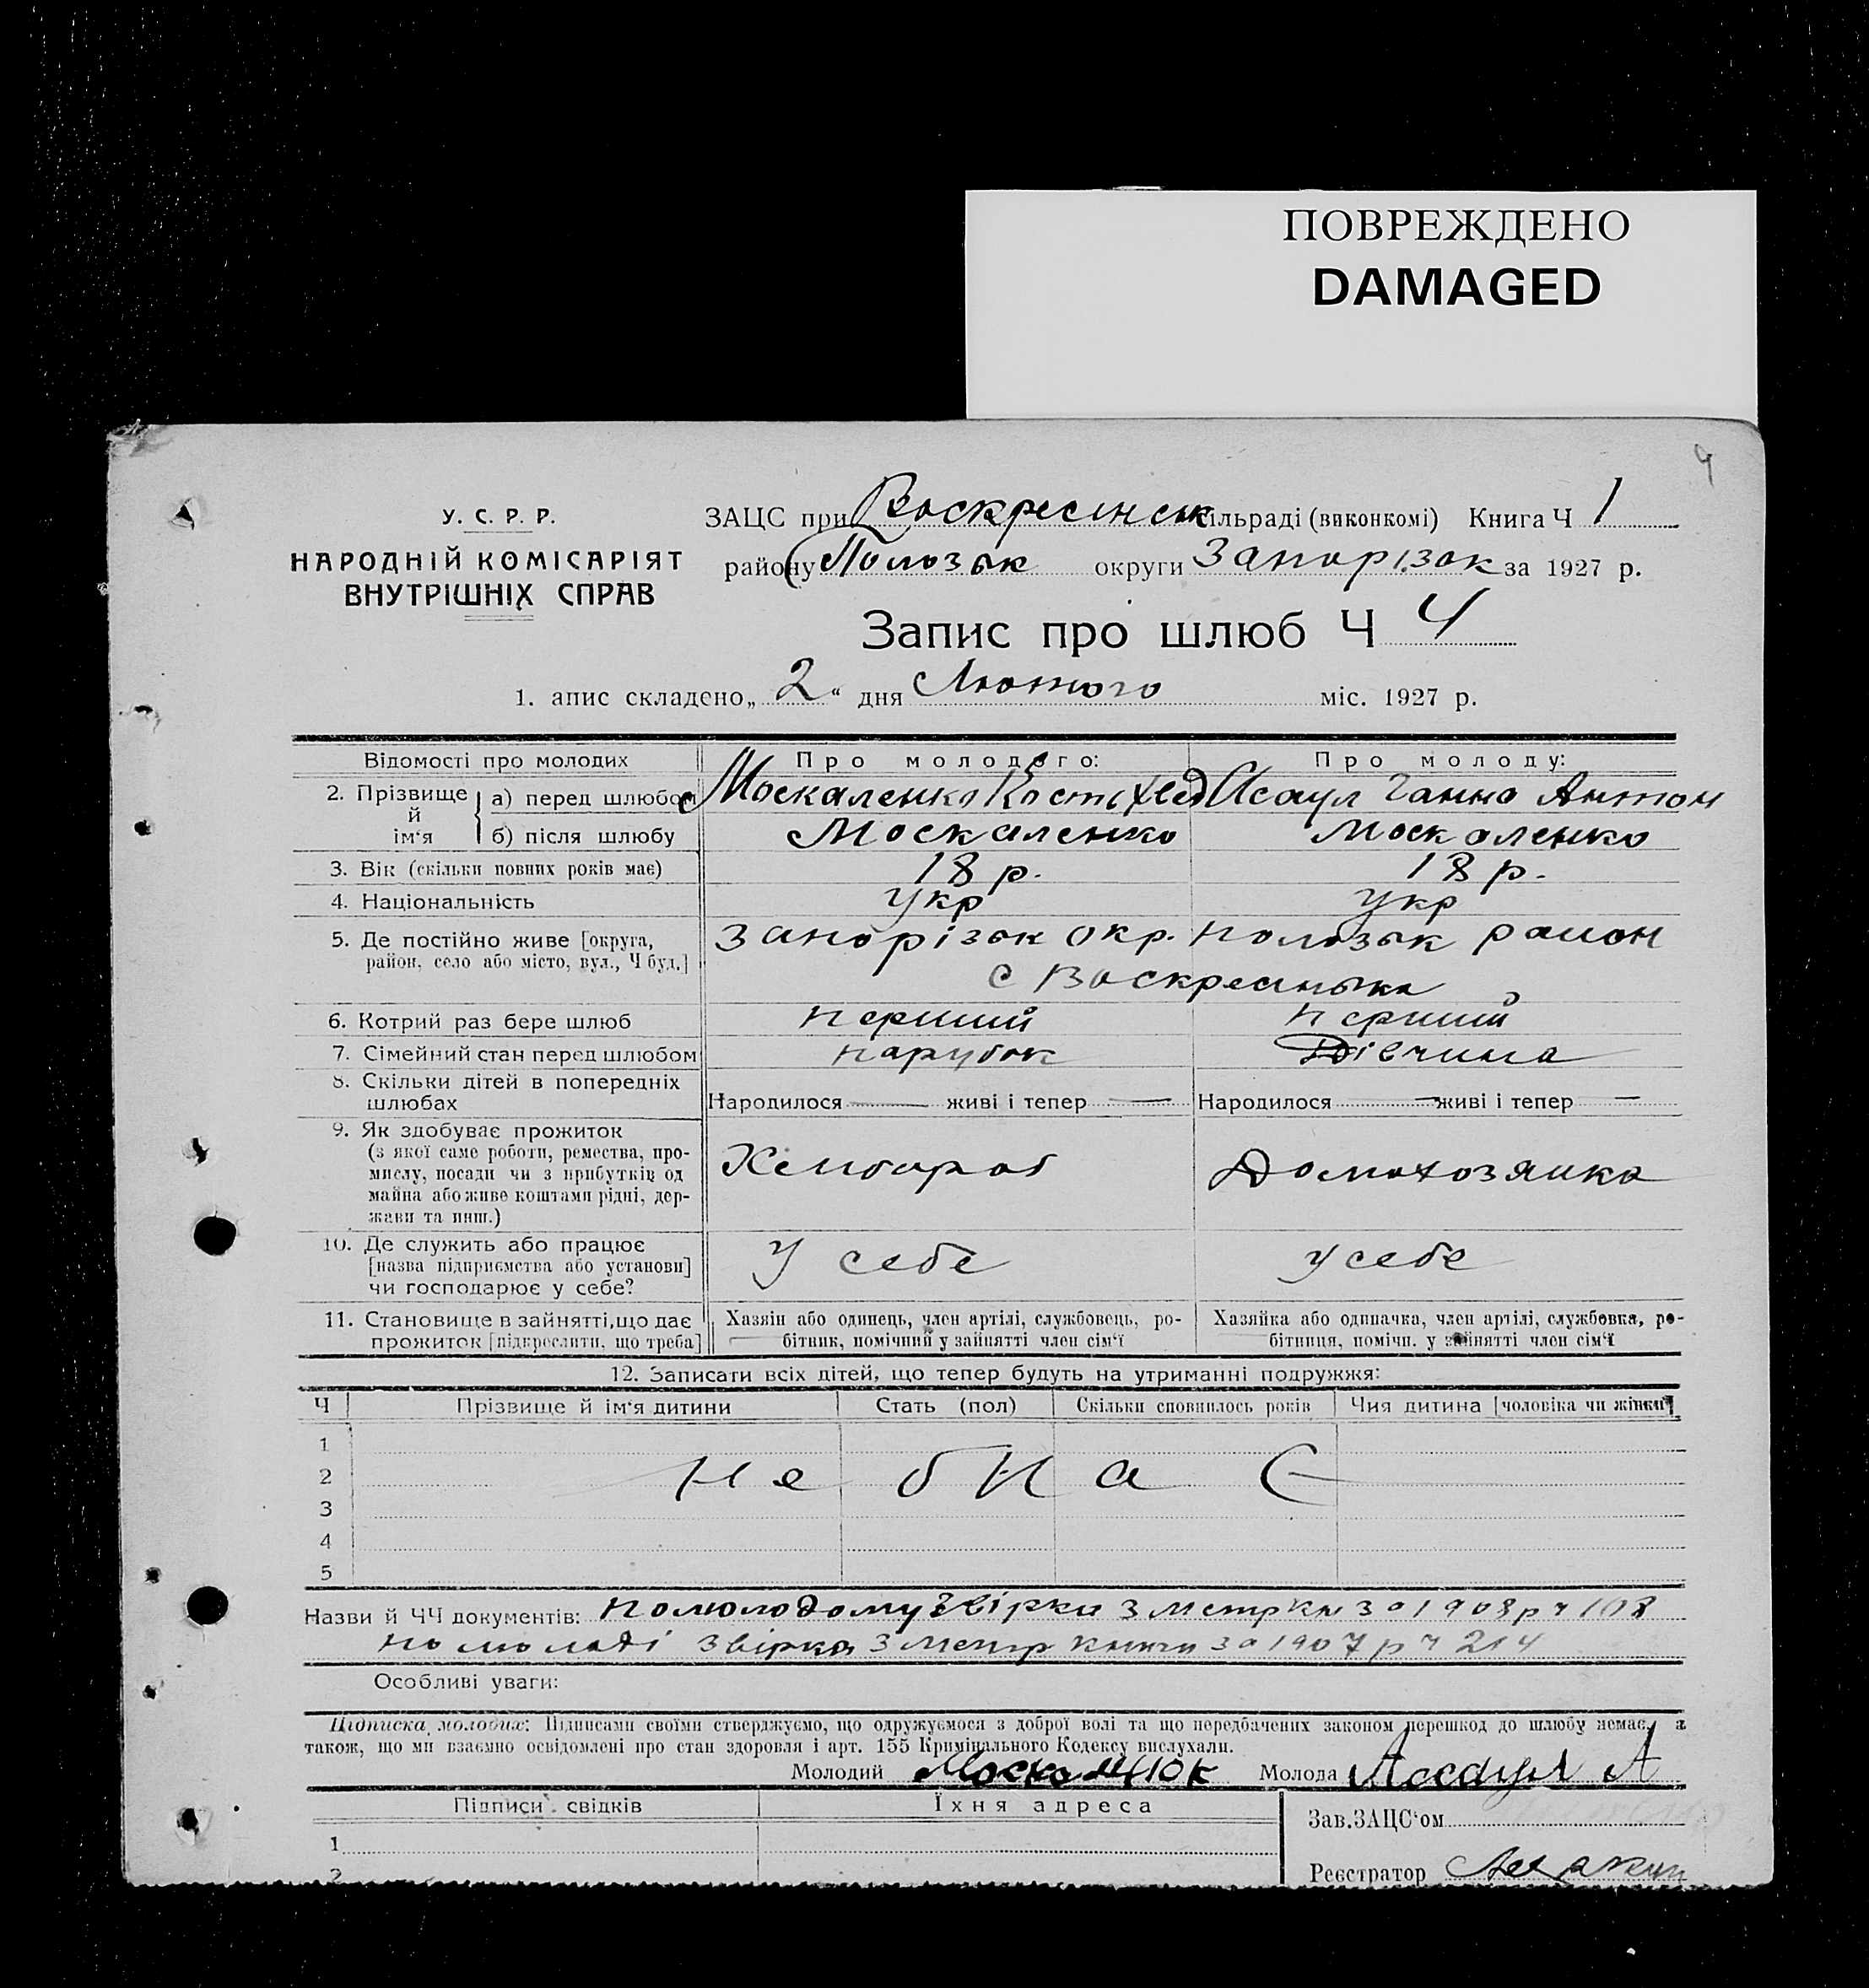 ПОВРЕЖДЕНО
DAMAGED
4
У. С. Р. Р.
НАРОДНІЙ КОМІСАРІЯТ
ВНУТРІШНІХ СПРАВ
ЗАЦС при Воскресінськ сільраді (виконкомі) Книга Ч 1
району Полозьк округи Запорізьк за 1927 р.
Запис про шлюб Ч 4
1. апис складено „ 2 “ дня Лютого міс. 1927 р.
Відомості про молодих Про молодого: Про молоду:
2. Прізвище й ім‘я
а) перед шлюбом Москаленко Кость Хед Асаул Ганна Антон
б) після шлюбу Москаленко Москаленко
3. Вік (скільки повних років має) 18 р. 18 р.
4. Національність Укр Укр
5. Де постійно живе [округа, Запорізьк окр. Полозьк район
район, село або місто, вул., Ч буд.] с Воскресінька
6. Котрий раз бере шлюб перший перший
7. Сімейний стан перед шлюбом парубок Дівчина
8. Скільки дітей в попередніх
шлюбах Народилося — живі і тепер — Народилося — живі і тепер —
9. Як здобуває прожиток
(з якої саме роботи, ремества, про-
мислу, посади чи з прибутків од Хлібороб Домохозяйка
майна або живе коштами рідні, дер-
жави та инш.)
10. Де служить або працює
[назва підприємства або установи] У себе у себе
чи господарює у себе?
11. Становище в зайнятті, що дає Хазяїн або одинець, член артілі, службовець, ро- Хазяйка або одиначка, член артілі, службовка, ро-
прожиток [підкреслити, що треба] бітник, помічний у зайнятті член сім‘ї бітниця, помічн. у зайнятті член сім‘ї
12. Записати всіх дітей, що тепер будуть на утриманні подружжя:
Ч Прізвище й ім‘я дитини Стать (пол) Скільки сповнилось років Чия дитина [чоловіка чи жінки]
1
2
3
4
5
Назви й ЧЧ документів: По молодому Звірки з метр кн за 1908 р ч 108
по молоді звірка з метр книги за 1907 р ч 214
Особливі уваги:
Підписка молодих: Підписами своїми стверджуємо, що одружуємося з доброї волі та що передбачених законом перешкод до шлюбу немає, а
також, що ми взаємно освідомлені про стан здоровля і арт. 155 Кримінального Кодексу вислухали.
Молодий Молода Асаул А
Підписи свідків Їхня адреса Зав. ЗАЦС‘ом
1
2 Реєстратор